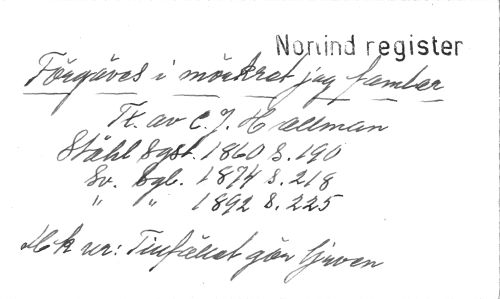 Norlind register
Förgäves i mörkret jag famlar
Tt. av C. J. Hallman
Ståhl Sgst. 1860 S. 190
Sv. Sgb. 1874 S. 218
" " 1892 S. 225
Hk ur: Tillfället gör tjuven